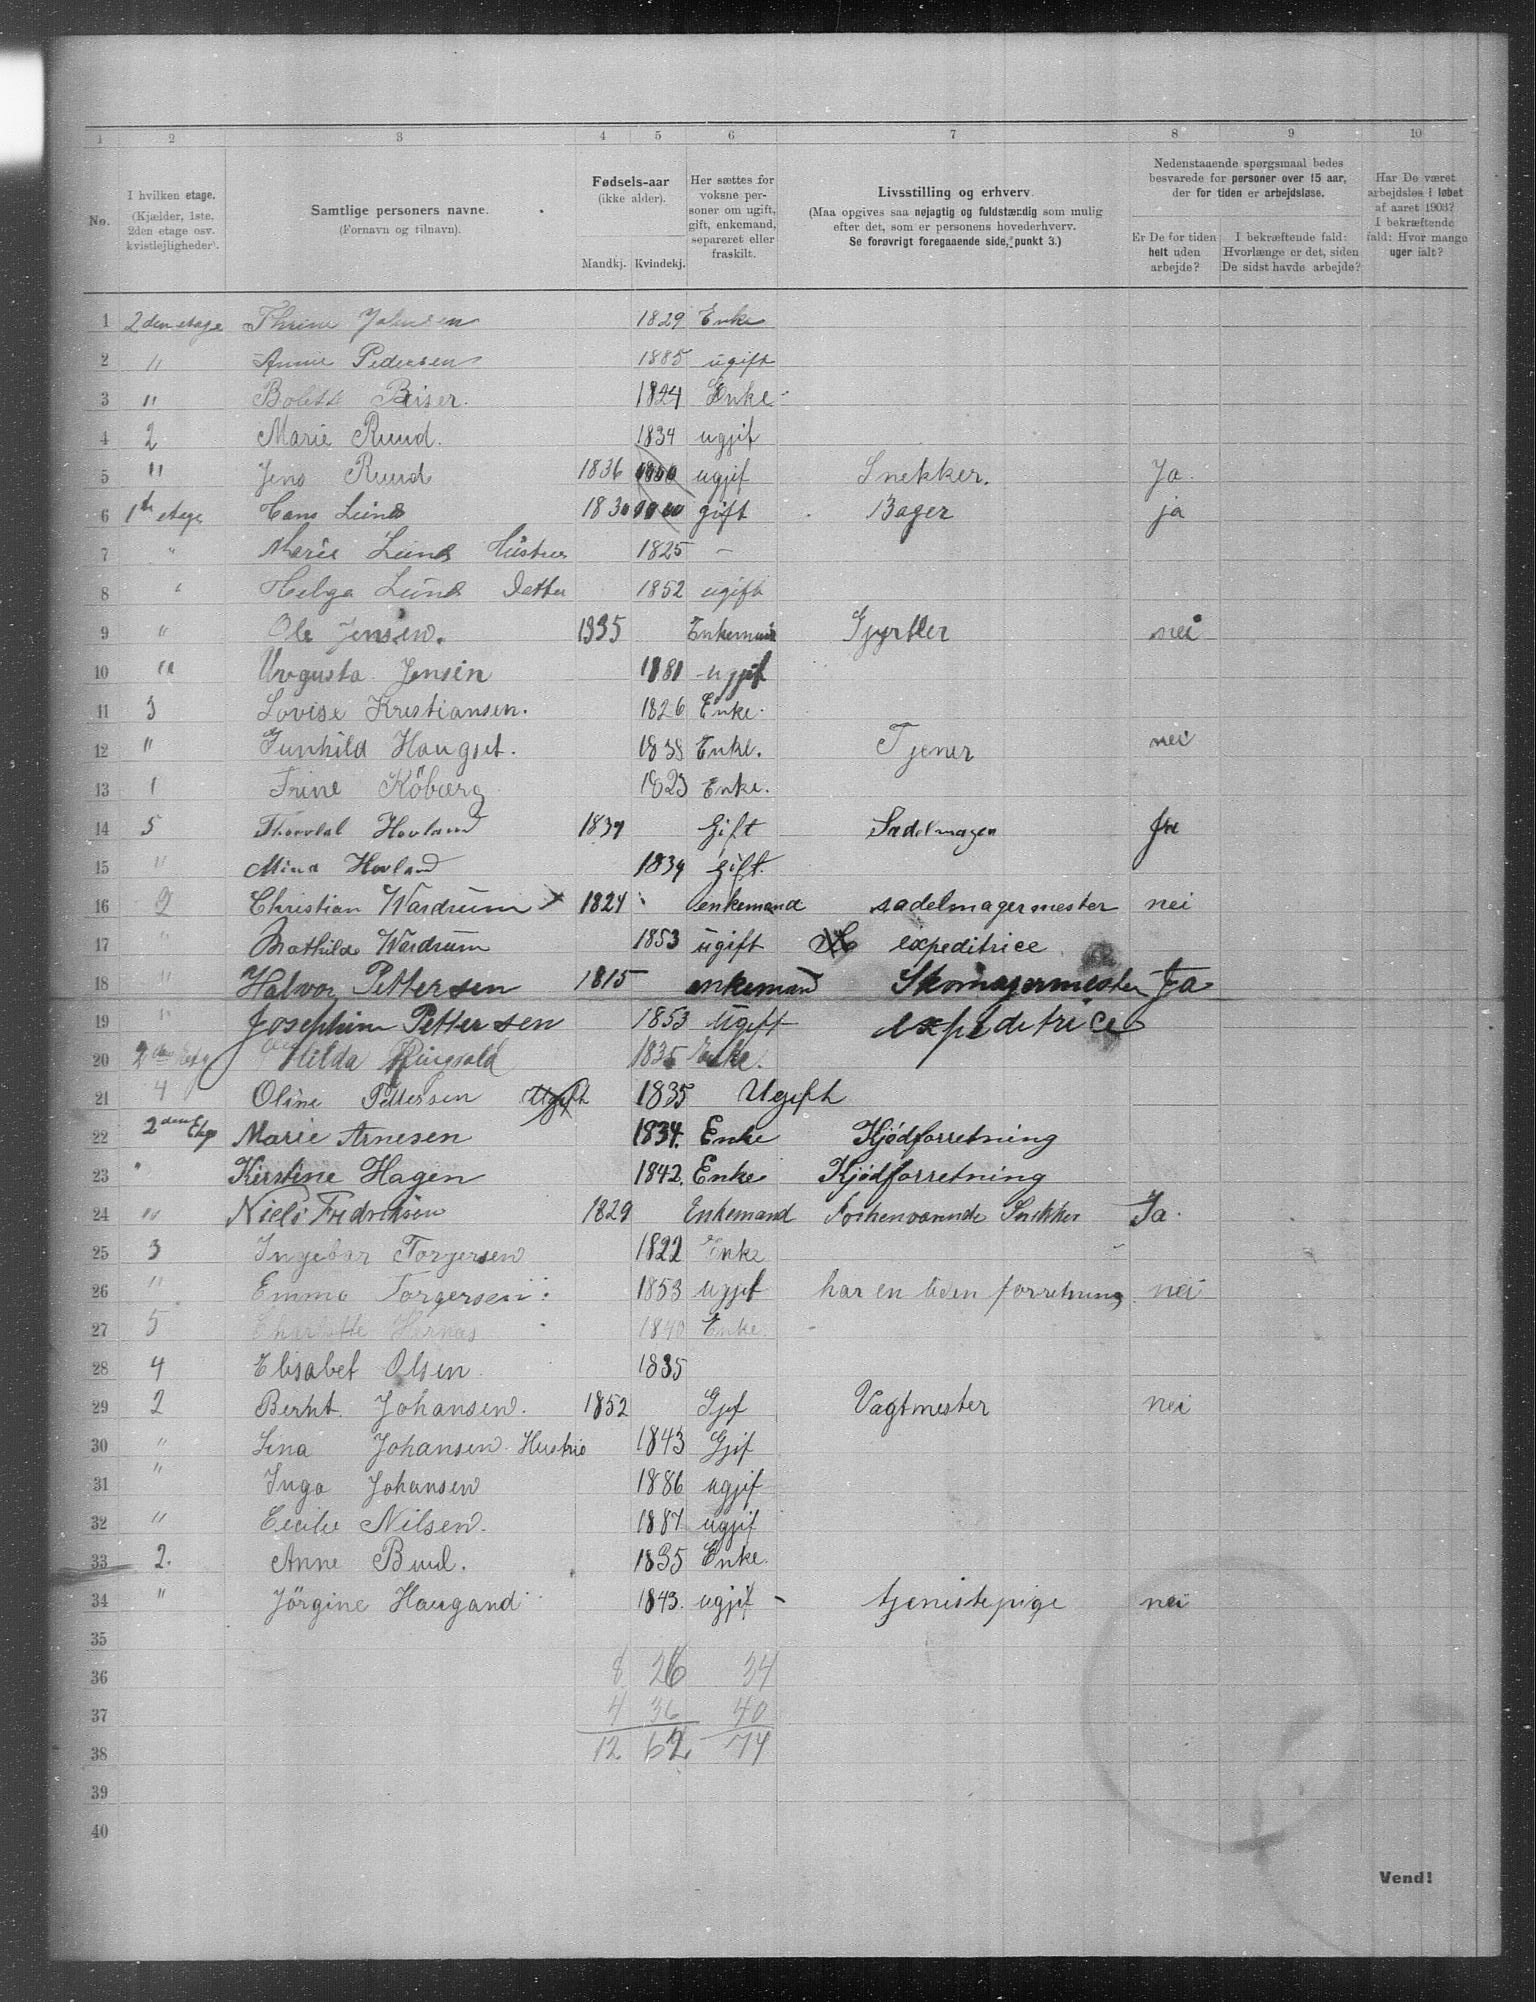 1 2 3 4 5 6 7 8 9 10
No.
I hvilken etage.
(Kjælder, 1ste, 2den etage osv. kvistlejligheder).
Samtlige personers navne.
(Fornavn og tilnavn).
Fødsels-aar
(ikke alder).
Mandkj. Kvindekj.
Her sættes for voksne personer om ugift, gift, enkemand, separeret eller fraskilt.
Livsstilling og erhverv.
(Maa opgives saa nøjagtig og fuldstændig som mulig efter det, som er personens hovederhverv.
Se forøvrigt foregaaende side, punkt 3.)
Nedenstaaende spørgsmaal bedes besvarede for personer over 15 aar, der for tiden er arbejdsløse.
Er De for tiden helt uden arbejde?
I bekræftende fald: Hvorlænge er det, siden De sidst havde arbejde?
Har De været arbejdsløs i løbet af aaret 1903? I bekræftende fald: Hvor mange uger ialt?
1 2den etage Thrine Johnsen 1829 Enke
2 " Annie Pedersen 1885 ugift
3 " Bolette Beiser. 1824 Enke
4 2 Marie Ruud. 1834 ugjif
5 " Jens Ruud 1836 ugjif Snekker. Ja.
6 1ste etage Hans Lund 1830 gift Bager ja
7 " Marie Lund Hustru 1825 –
8 " Helga Lund Datter 1852 ugift
9 " Ole Jensen. 1835 Enkeman Gjørtler nei
10 " Avgusta Jensen 1881 ugjif
11 3 Lovise Kristiansen. 1826 Enke.
12 " Gunhild Haugset. 1838 Enke. Tjener nei
13 1 Trine Köberg 1823 Enke.
14 5 Thorvlal Hovland 1837 Gift Sadelmager Ja
15 " Mina Hovland 1834 gift.
16 2 Christian Wardrum 1824 enkemand sadelmagermester nei
17 " Mathilde Wardrum 1853 ugift expeditrice
18 " Halvor Pettersen 1815 enkemand Skomagermester Ja
19 " Josephine Pettersen 1853 Ugift expeditrice
20 2den Hilda 1835 Enke.
21 4 Oline Pettersen Ugift 1835 Ugift
22 2den Etge Marie Arnesen 1834. Enke Kjödforretning
23 " Kirstine Hagen 1842. Enke Kjödforretning
24 " Niels Fredriksen 1829 Enkemand Forhenværende Snekker Ja.
25 3 Ingebor Torgersen 1822 Enke
26 " Emma Torgersen 1853 ugjif har en liden forretning nei
27 5 Charlotte Hernæs 1840 Enke.
28 4 Elisabet Olsen 1835
29 2 Bernt. Johansen. 1852 Gjef Vagtmester nei
30 " Lina Johansen Hustru 1843 Gjif
31 " Inga Johansen 1886 ugjif
32 " Cecilie Nilsen. 1887 ugjif
33 2. Anne Buul. 1835 Enke.
34 " Jörgine Haugand 1843. ugjif – tjenistepige nei
35
36 8 26 34
37 4 36 40
38 12 62 74
39
40
Vend!